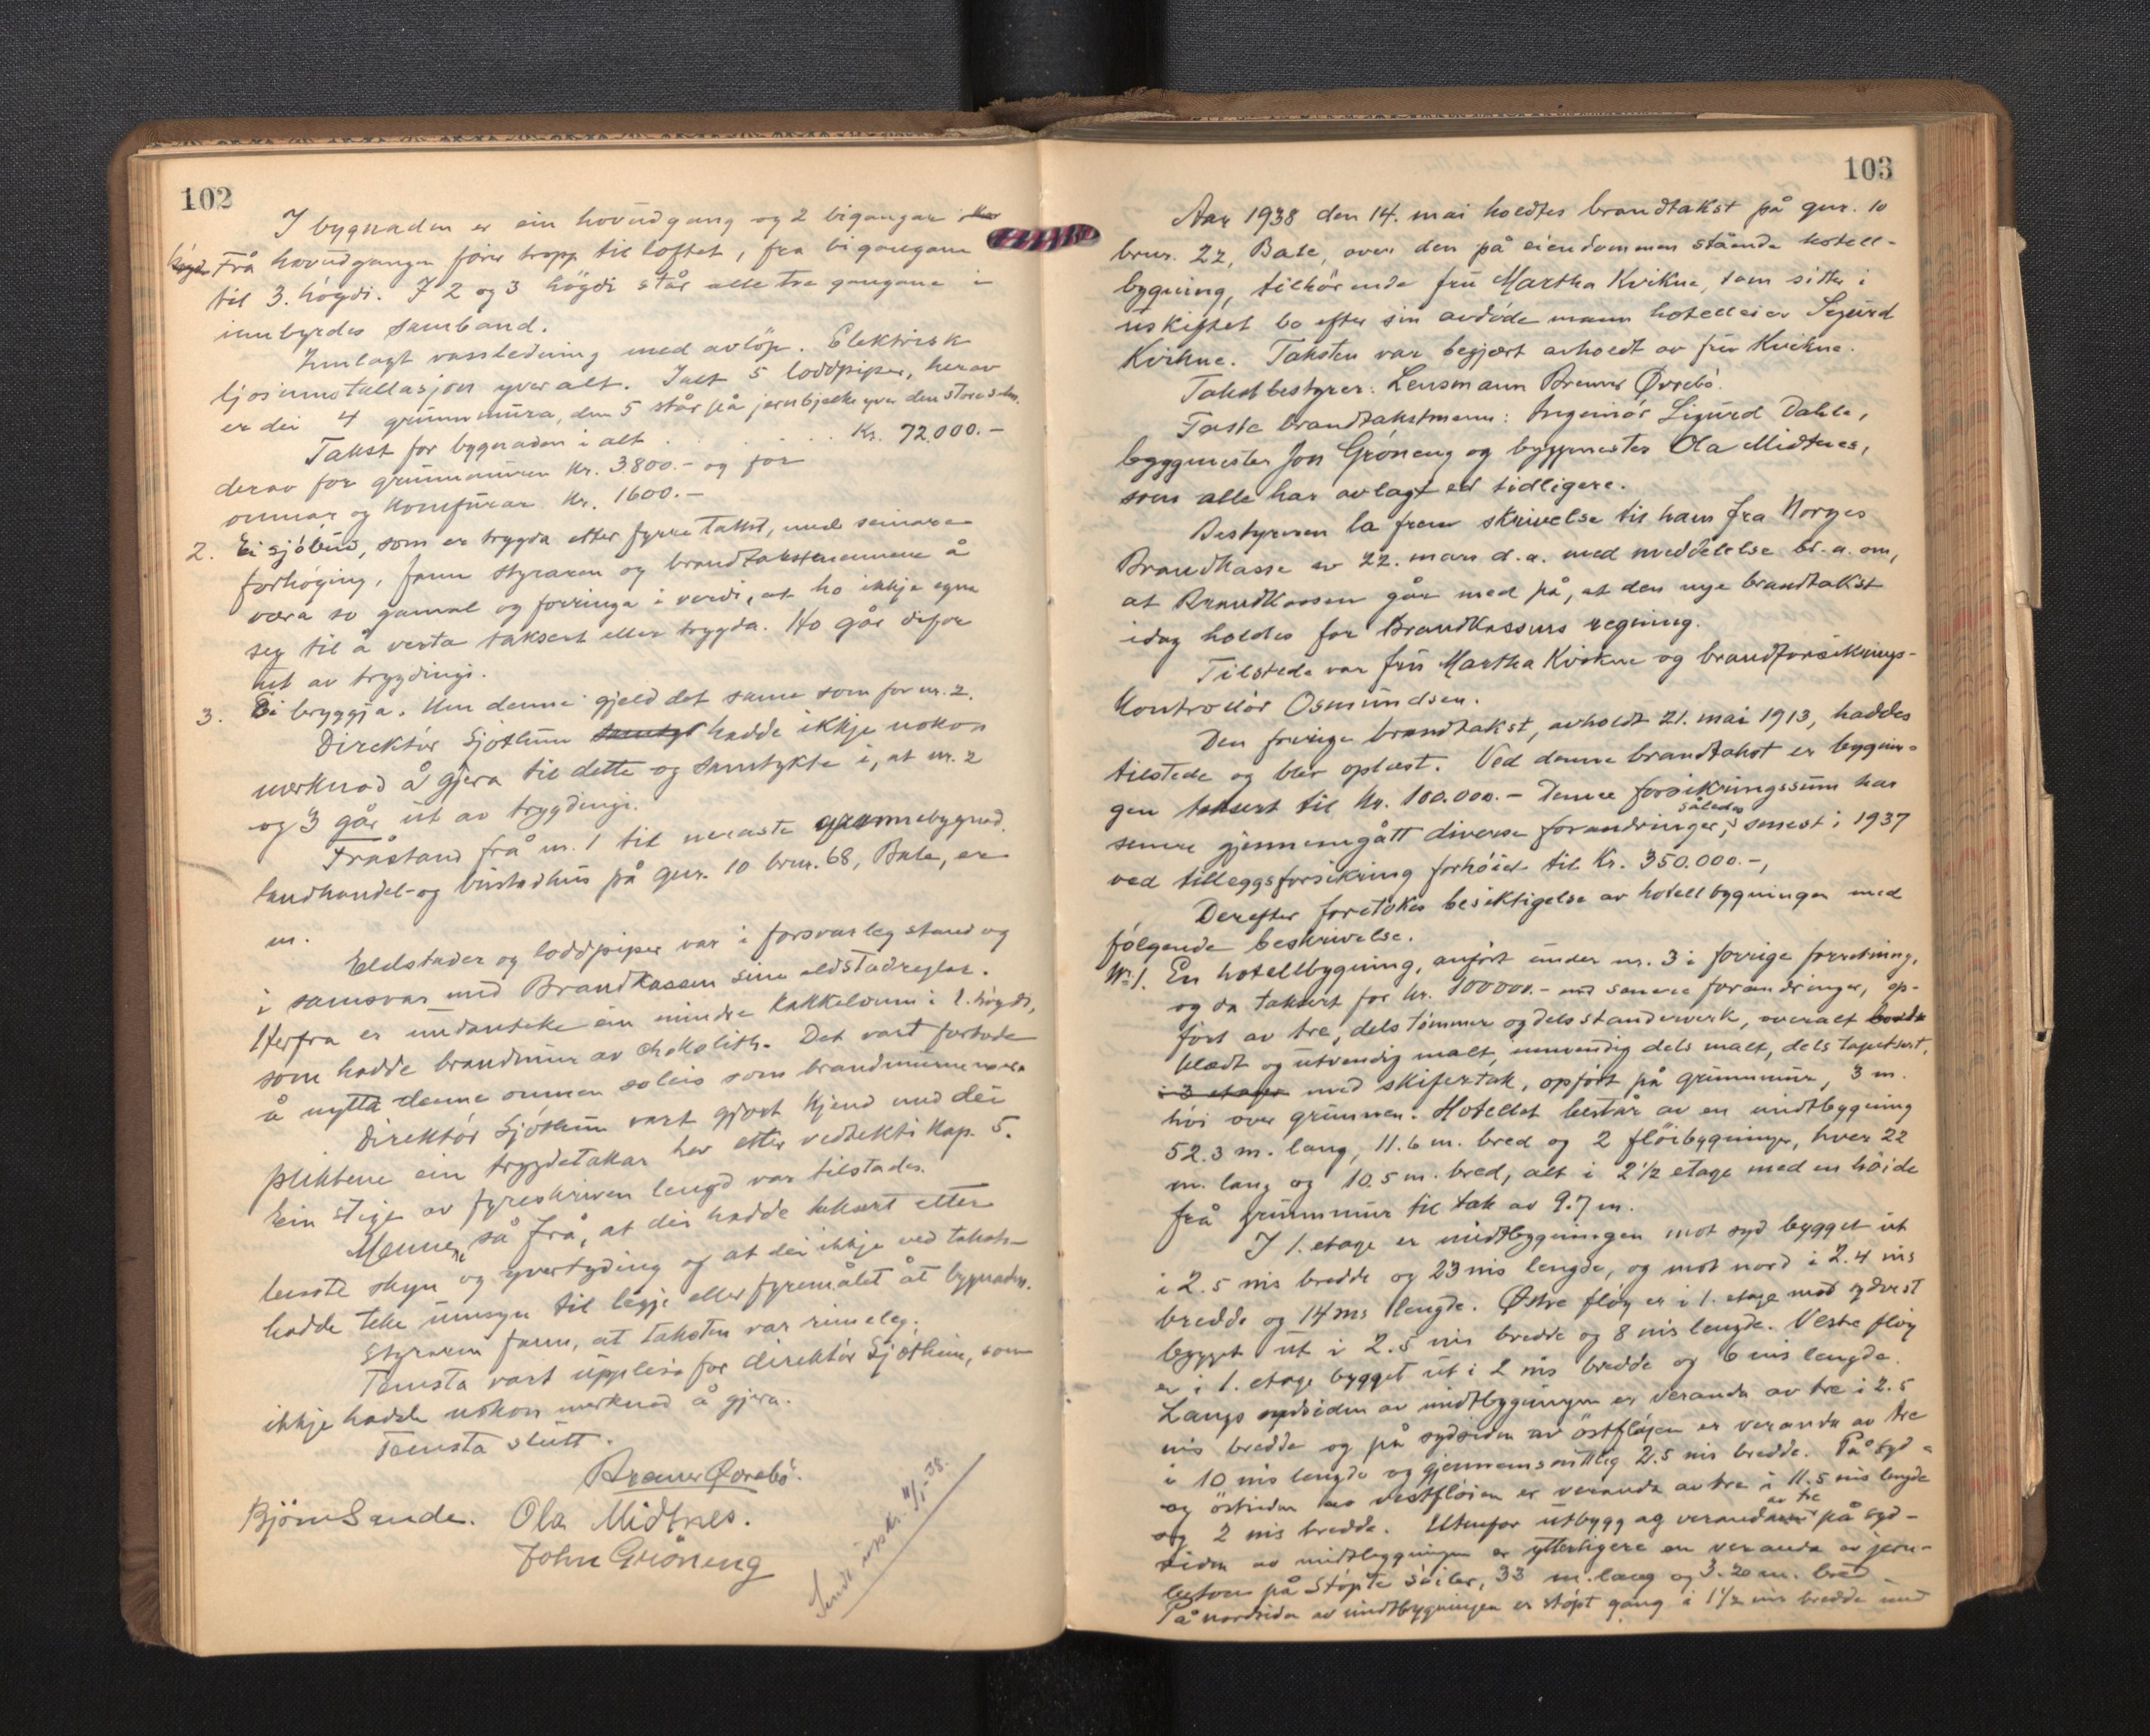 102
I bygnaden er ein hovudgang og 2 bigangar i
Frå hovudgangen fører tropp til loftet, fra bigangane
til 3. högdi. I 2 og 3 högdi står alle tre gangane i
innbyrdes samband.
Innlagt vassledning med avlöp. Elektrisk
ljosinnstallasjon yveralt. Ialt 5 loddpipor, herav
er dei 4 grunnmura, den 5 står på jernbjelke yver den store salen.
Takst for bygnaden i alt . . . . . . . Kr. 72.000.-
derav for grunnmuren Kr. 3800.- og for
omnar og komfurar Kr. 1600.-
2. Ei sjöbud, som er trygda etter fyrre takst, med seinare
forhöging, fann styraren og brandtakstmennene å
vera so gamal og forringa i verdi, at ho ikkje egna
seg til å verta taksert eller trygda. Ho går difor
ut av trygdingi.
3. Ei bryggja. Um denne gjeld det same som for nr. 2.
Direktör Sjöthun hadde ikkje nokon
merknad å gjera til dette og samtykte i, at nr. 2
og 3 går ut av trygdingi.
Fråstand frå nr. 1 til næraste grannebygnad,
landhandel- og bustadhus på gnr. 10 brnr. 68, Bale, er
m.
Eldstader og loddpipor var i forsvarleg stand og
i samsvar med Brandkassen sine eldstadreglar.
Herfra er undanteke ein mindre kakkelomn i 1. högdi,
som hadde brandmur av chokolith. Det vart forbode
å nytta denne omnen soleis som brandmurene var.
Direktör Sjöthun vart gjort kjend med dei
pliktene ein trygdetakar hev etter vedtekti kap. 5.
Ein stige av fyreskriven lengd var tilstades.
Mennene så frå, at dei hadde taksert etter
beste skyn og yvertyding og at dei ikkje ved taksten
hadde teke umsyn til legje eller fyremålet åt bygnaden.
Styraren fann, at taksten var rimeleg.
Tensta vart upplesi for direktör Sjöthun, som
ikkje hadde nokon merknad å gjera.
Tensta slutt.
Bremer Øvrebö.
Björn Sande. Ola Midtnes.
John Gröneng
Sendt utskr. 4/5-38.
103
Aar 1938 den 14. mai holdtes brandtakst på gnr. 10
brnr. 22, Bale, over den på eiendommen stående hotell-
bygning, tilhörende fru Martha Kvikne, som sitter i
uskiftet bo efter sin avdöde mann hotelleier Sigurd
Kvikne. Taksten var begjært avholdt av fru Kvikne.
Takstbestyrer: Lensmann Bremer Øvrebö.
Faste brandtakstmenn: Ingeniör Sigurd Dahle,
byggmester Jon Gröneng og byggmester Ola Midtnes,
som alle har avlagt ed tidligere.
Bestyreren la frem skrivelse til ham fra Norges
Brandkasse av 22. mars d.a. med meddelelse bl.a. om,
at Brandkassen går med på, at den nye brandtakst
idag holdes for Brandkassens regning.
Tilstede var fru Martha Kvikne og brandforsikrings-
kontrollör Osmundsen.
Den forrige brandtakst, avholdt 21. mai 1913, haddes
tilstede og blev oplæst. Ved denne brandtakst er bygnin-
gen taksert til Kr. 100.000.- Denne forsikringssum har
senere gjennemgått diverse forandringer, således senest i 1937
ved tilleggsforsikring forhöiet til Kr. 350.000.-,
Derefter foretokes besiktigelse av hotellbygningen med
fölgende beskrivelse.
Nr. 1. En hotellbygning, anfört under nr. 3 i forrige forretning,
og da taksert for kr. 100000.- med senere forandringer, op-
fört av tre, dels tömmer og dels standerverk, overalt bord-
klædt og utvendig malt, innvendig dels malt, dels tapetsert,
i 3 etager med skifertak, opfört på grunnmur, 3 m.
höi over grunnen. Hotellet består av en midtbygning
52.3 m. lang, 11.6 m. bred og 2 flöibygninger, hver 22
m. lang og 10.5 m. bred, alt i 2 1/2 etage med en höide
frå grunnmur til tak av 9.7 m.
I 1. etage er midtbygningen mot syd bygget ut
i 2.5 ms bredde og 23 ms lengde, og mot nord i 2.4 ms
bredde og 14 ms lengde. Østre flöy er i 1. etage mot sydvest
bygget ut i 2.5 ms bredde og 8 ms lengde. Vestre flöy
er i 1. etage bygget ut i 2 ms bredde og 6 ms lengde.
Langs sydsiden av midtbygningen er veranda av tre i 2.5
ms bredde og på sydsiden av östflöien er veranda av tre
i 10 ms lengde og gjennemsnittlig 2.5 ms bredde. På syd-
og östsiden av vestflöien er veranda av tre i 11.5 ms lengde
og 2 ms bredde. Utenfor utbygg og veranda av tre på syd-
siden av midtbygningen er ytterligere en veranda av jern-
beton på stöpte söiler, 33 m. lang og 3.20 m. bred.
På nordsiden av midtbygningen er stöpt gang i 1 1/2 ms bredde med